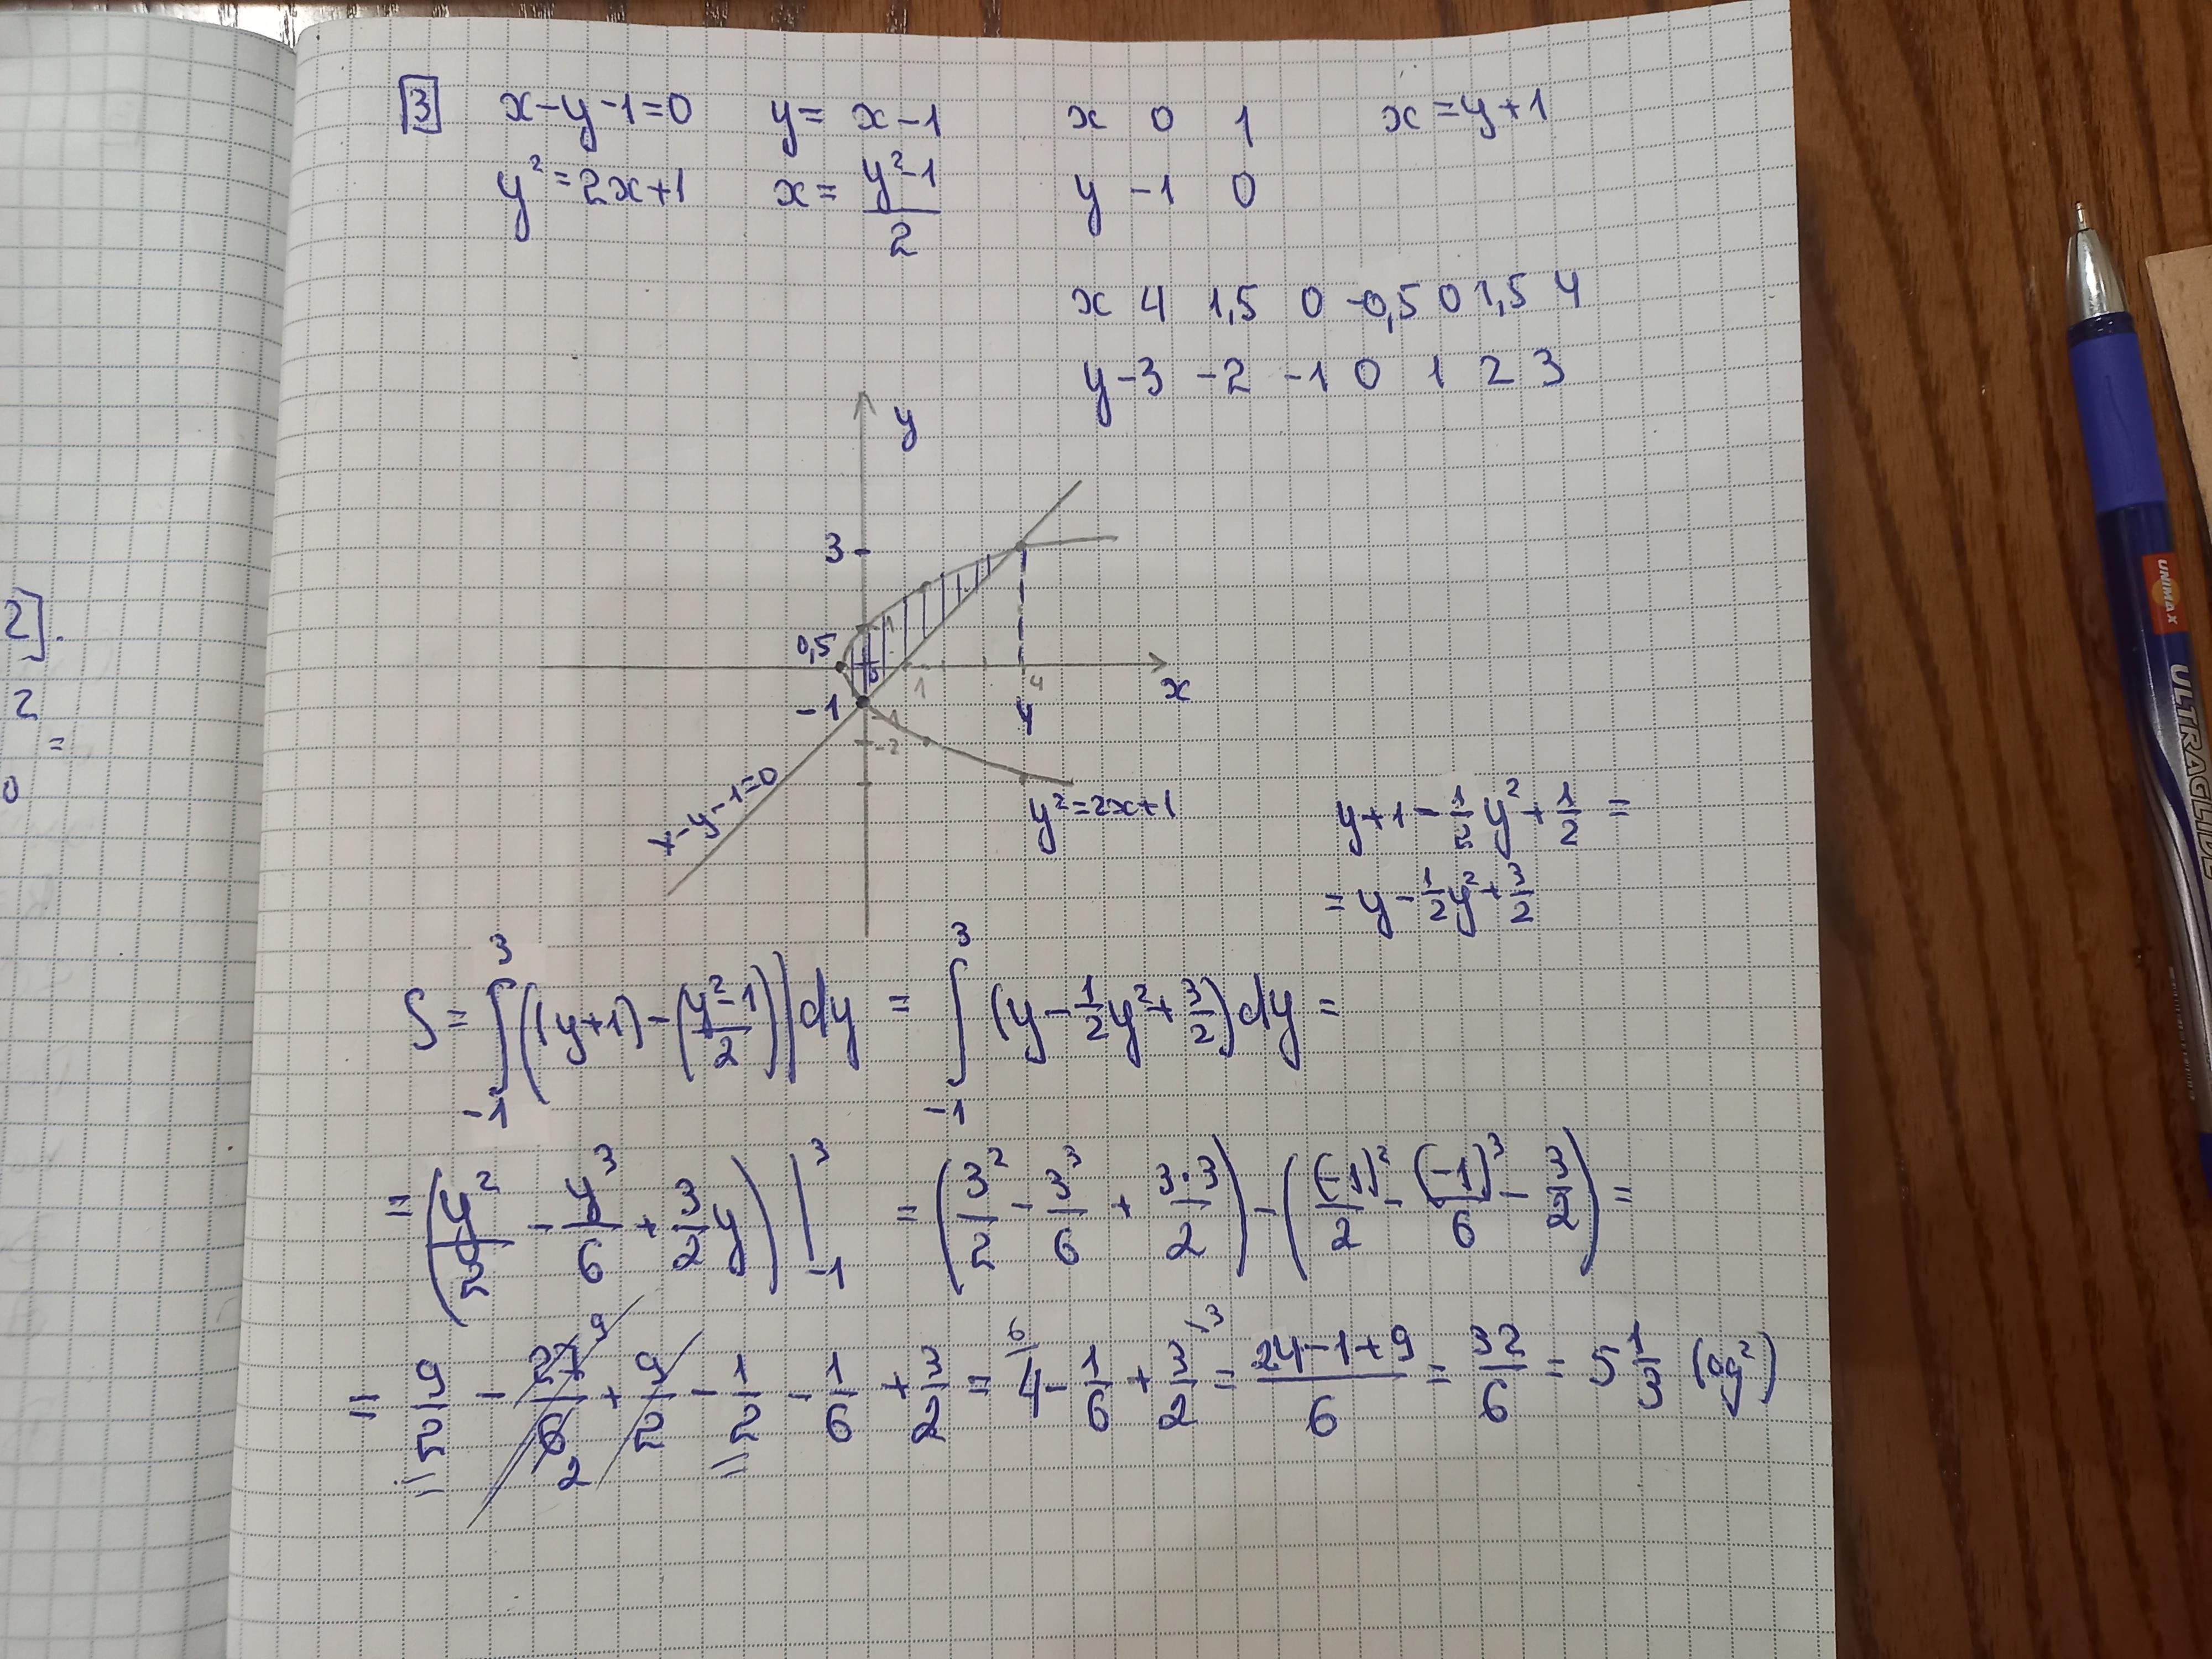 3 x-y-1=0 y= x-1 x 0 1 x=y+1
y²=2x+1 x= (y²-1)/2 y -1 0
x 4 1,5 0 -0,5 0 1,5 4
y -3 -2 -1 0 1 2 3
y
3
0,5 1
1 4 x
-1 -1 4
-2
x-y-1=0
y²=2x+1
y+1-1/2y²+1/2=
=y-1/2y²+3/2
S=∫₋₁³((y+1)-((y²-1)/2))dy = ∫₋₁³(y-1/2y²+3/2)dy=
=(y²/2-y³/6+3/2y)|₋₁³ =(3²/2-3³/6+3·3/2)-((-1)²/2-(-1)³/6-3/2)=
=9/2-27/6+9/2-1/2-1/6+3/2=4-1/6+3/2=(24-1+9)/6=32/6=5 1/3
2].
2
=
0
UNIMAX
ULTRAGLIDE